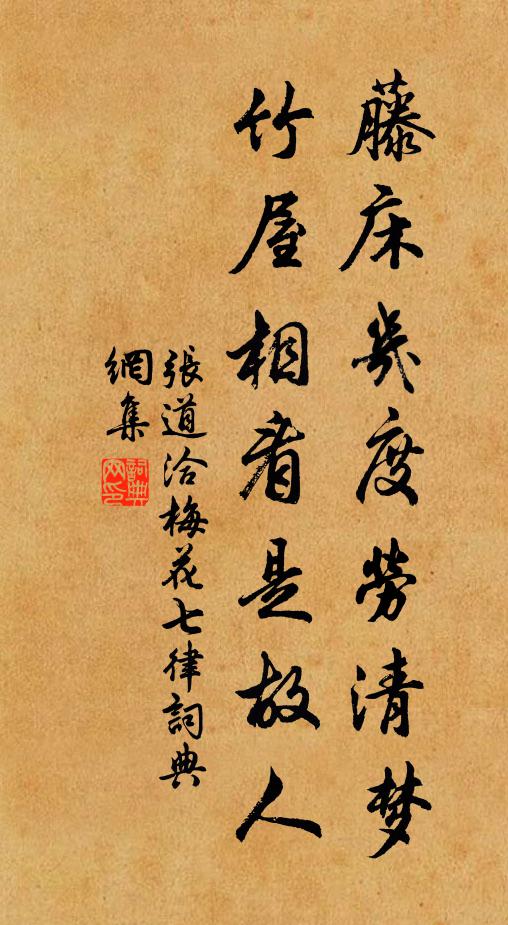 藤床幾度勞清梦
竹屋相看是故人
張道洽梅花七律詞典
網集
詞典
网印